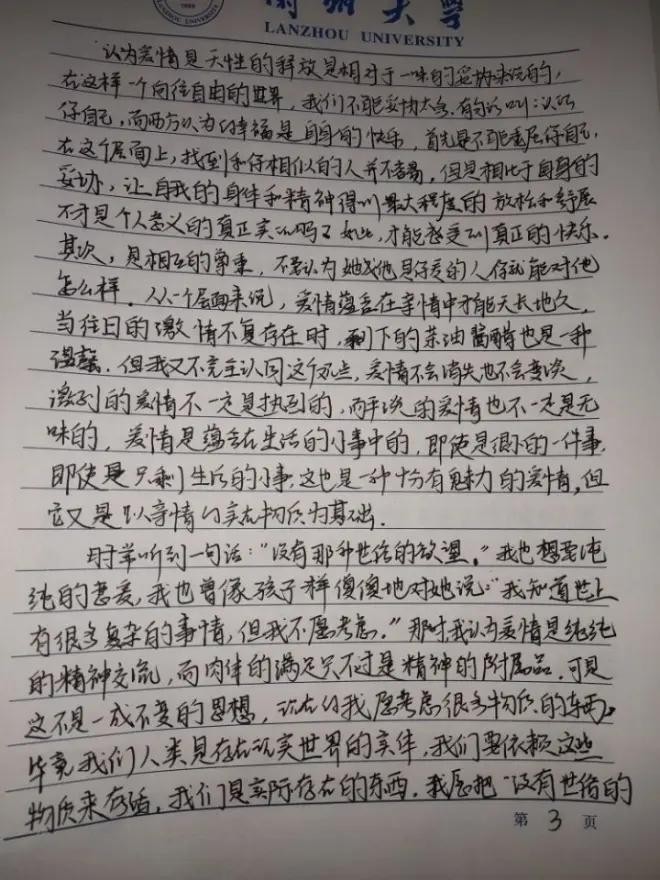 兰州大学
LANZHOU UNIVERSITY
认为爱情是天性的释放是相对于一味的妥协来说的,
在这样一个向往自由的世界,我们不能妥协太多.有句话叫:认识
你自己,而西方认为的幸福是自身的快乐,首先是不能委屈你自己,
在这个层面上,找到和你相似的人并不容易,但是相比于自身的
妥协,让自我的身体和精神得到最大程度的放松和舒展
不才是个人意义的真正实现吗?如此,才能感受到真正的快乐.
其次,是相互的尊重,不要认为她或他是你爱的人你就能对他
怎么样.从一个层面来说,爱情蕴含在亲情中才能天长地久,
当往日的激情不复存在时,剩下的茶油酱醋也是一种
温馨.但我又不完全认同这个观点,爱情不会消失也不会变淡,
激烈的爱情不一定是热烈的,而平淡的爱情也不一定是无
味的,爱情是蕴含在生活的小事中的,即使是很小的一件事,
即使是只剩下生活的小事,这也是一种十分有魅力的爱情,但
它又是以亲情的实在物质为基础.
时常听到一句话:"没有那种世俗的欲望."我也想要纯
纯的恋爱,我也曾像孩子样傻傻地对她说:"我知道世上
有很多复杂的事情,但我不愿考虑."那时我认为爱情是纯纯
的精神交流,而肉体的满足只不过是精神的附属品.可是
这不是一成不变的思想,现在的我愿考虑很多物质的东西。
毕竟我们人类是存在现实世界的实体,我们要依赖这些
物质来存活,我们是实际存在的东西.我愿把"没有世俗的
第 3 页